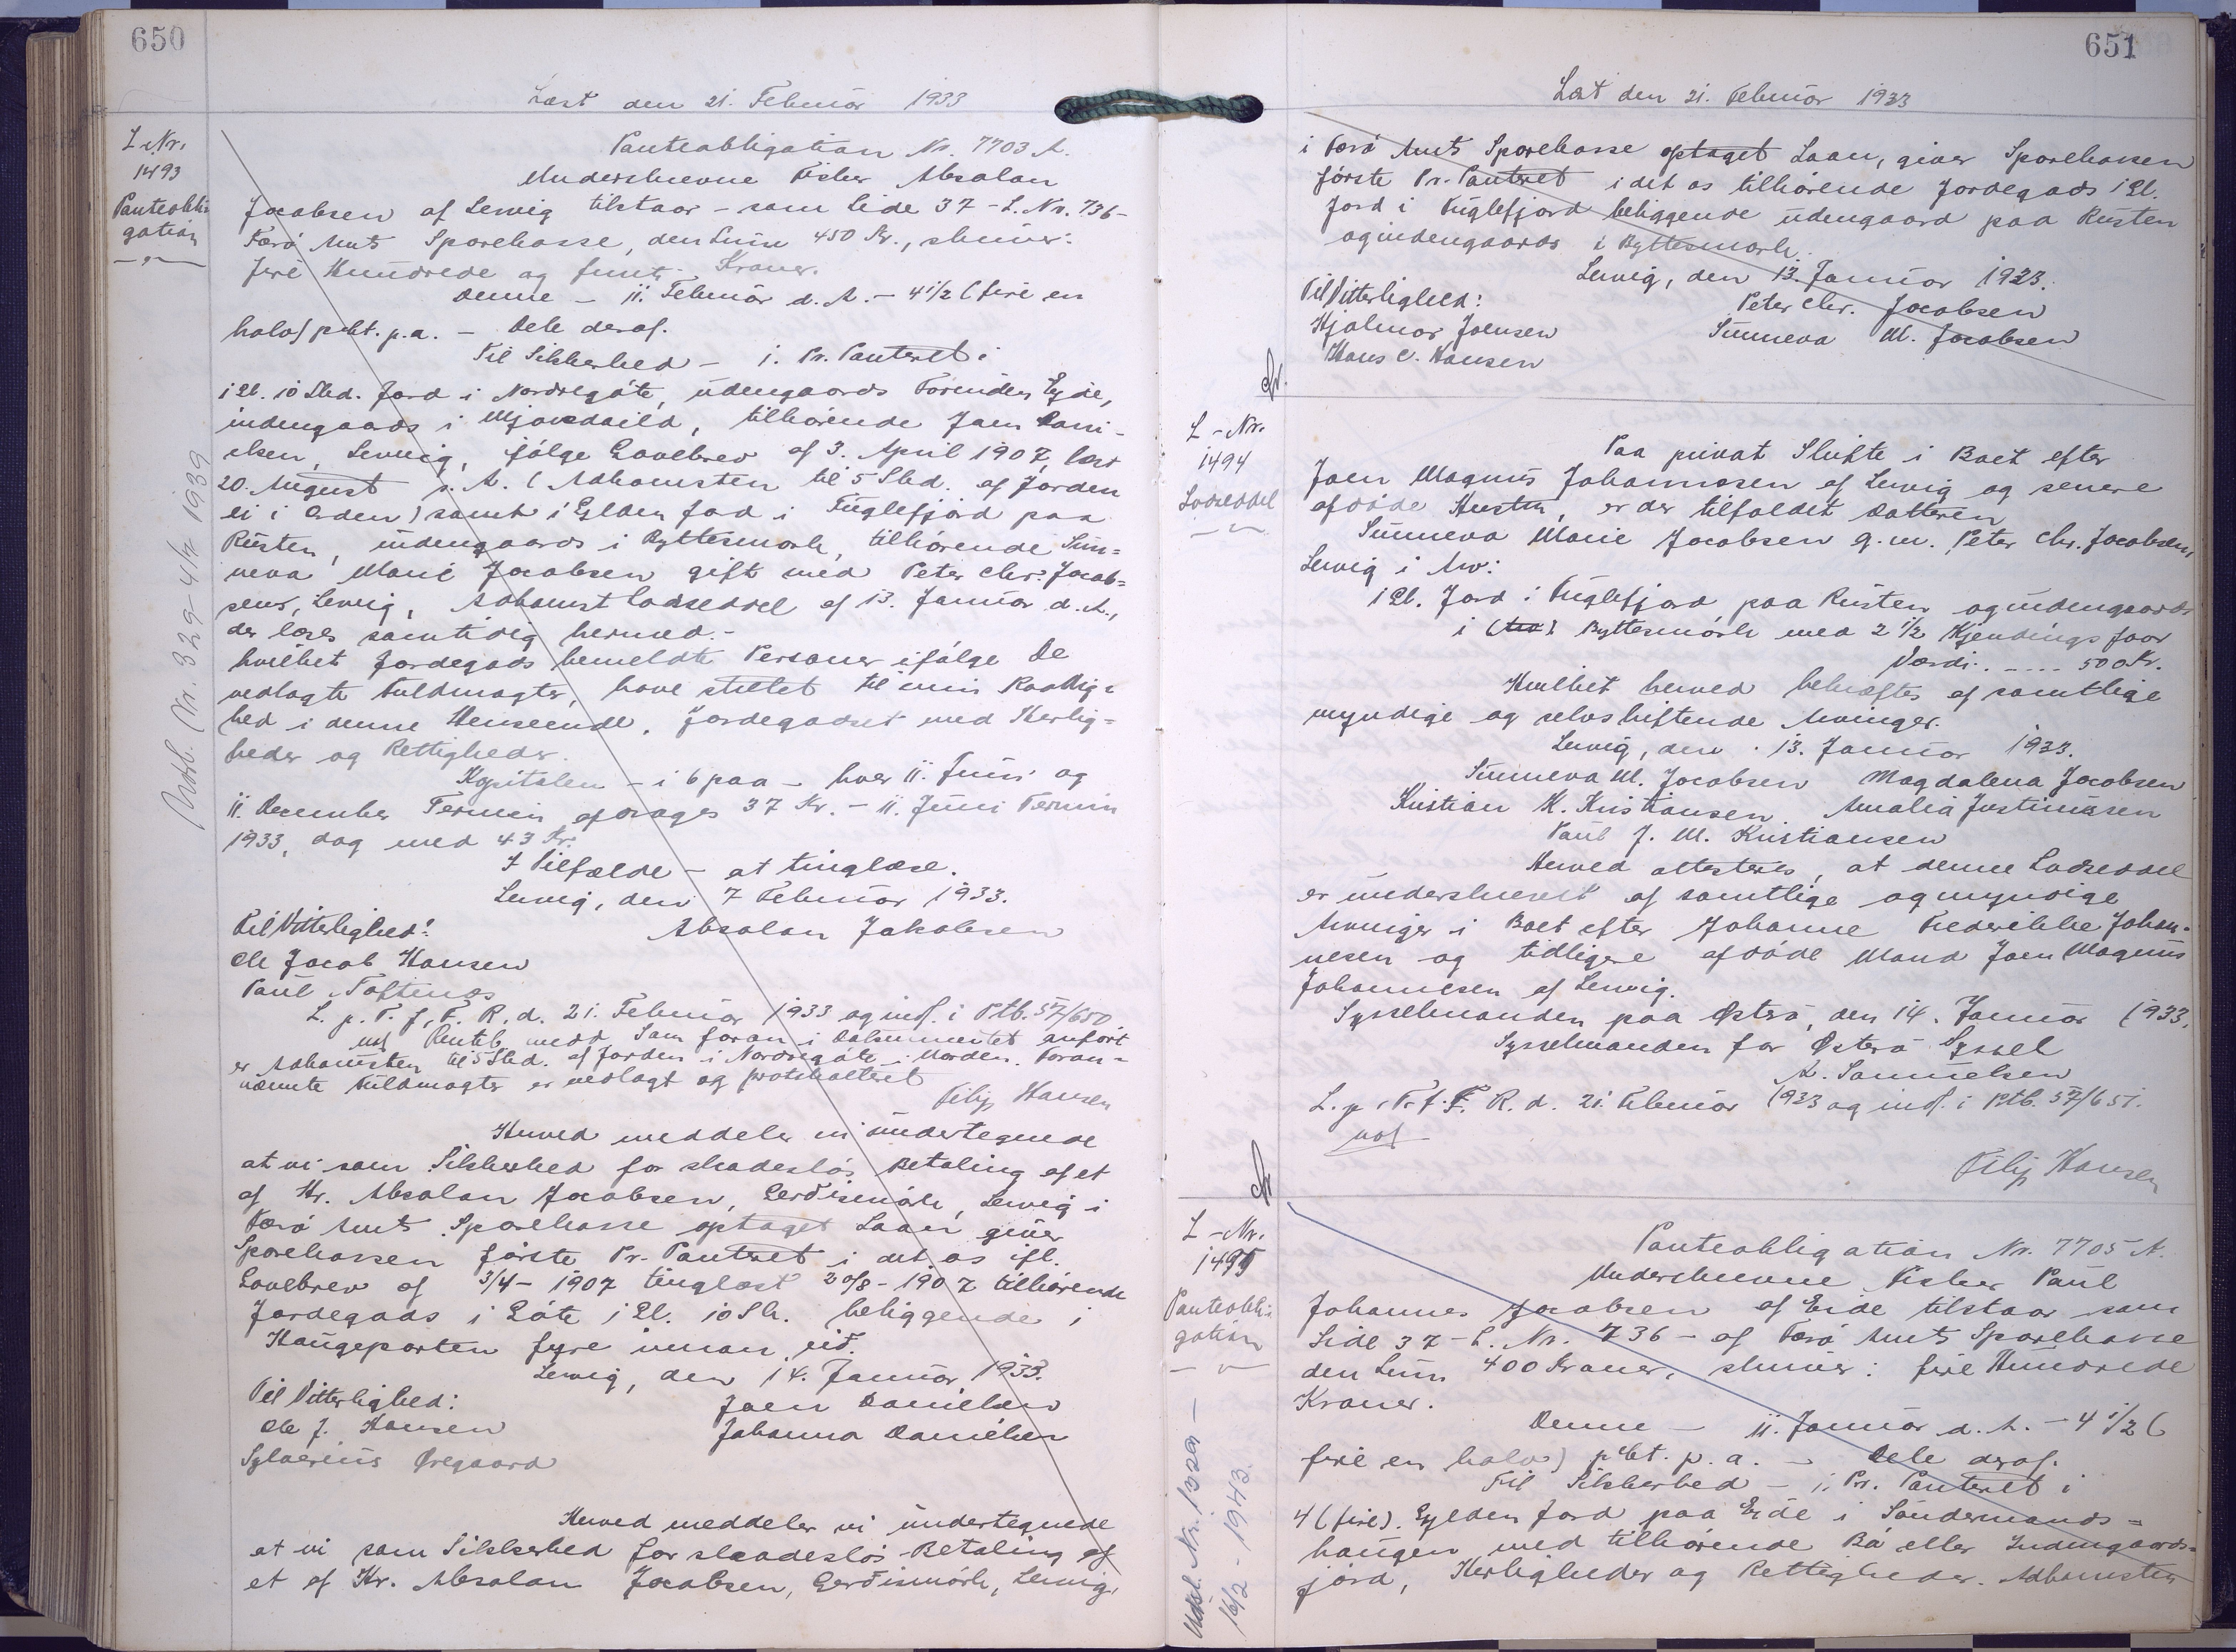 650
Læst den 21. Februar 1933
L Nr.
1493
Panteobli-
gation
Panteobligation Nr. 7703 A.
Underskrevne Fisker Absalon
Jacobsen af Lervig tilstaar - som Side 37 - L. Nr. 736 -
Færø Amts Sparekasse, den Sum 450 Kr., skriver:
fire Hundrede og femti Kroner.
Denne - 11. Februar d. A. - 4 1/2 (fire en
halv) pCt. p.a. - Dele deraf.
Til Sikkerhed - 1. Pr. Panteret i
1 Gl. 10 Skd. Jord i Nordregøte, udengaards Foruden Eyde,
indengaards i Mjovadaild, tilhørende Joen Dani-
elsen, Lervig, ifølge Gavebrev af 3. April 1907, læst
20. August s. A. (Adkomsten til 5 Skd. af Jorden
ei i Orden) samt 1 Gylden Jord i Fuglefjord paa
Rusten, indengaards i Byttesmørk, tilhørende Sun-
neva Marie Jacobsen gift med Peter Chr. Jacob-
sens, Lervig, Adkomst Lodseddel af 13. Januar d. A.,
der læses samtidig hermed. -
hvilket Jordegods bemeldte Personer ifølge de
vedlagte Fuldmagter, have stillet til min Raadig-
hed i denne Henseende, Jordegodset med Herlig-
heder og Rettigheder.
Kapitalen - i 6 paa - hver 11. Juni og
11. December Termin afdrages 37 Kr. - 11. Juni Termin
1933, dog med 43 Kr.
I Tilfælde - at tinglæse.
Lervig, den 7 Februar 1933.
Til Vitterlighed:
Absalon Jakobsen
Ole Jacob Hansen
Paul Toftenes
L. p. T. f. F. R. d. 21. Februar 1933 og indf. i Ptb. 57/650
Som foran i Dokumentet anført
er Adkomsten til 5 Skd. af Jorden i Nordregøte i Uorden. Foran-
nævnte Fuldmagter er vedlagt og protokolleret
Filip Hansen
Herved meddeler vi undertegnede
at vi som Sikkerhed for skadesløs Betaling af et
af Hr. Absalon Jacobsen, Gerdismørk, Lervig i
Færø Amts Sparekasse optaget Laan giver
Sparekassen første Pr. Panteret i det os ifl.
Gavebrev af 3/4 - 1907 tinglæst 20/8 - 1907 tilhørende
Jordegods i Gøte 1 Gl. 10 Sk. beliggende i
Haugeparten fyre innan eid.
Lervig, den 14. Januar 1933.
Til Vitterlighed:
Joen Danielsen
Ole J. Hansen
Johanna Danielsen
Sylverius Øregaard
Herved meddeler vi undertegnede
at vi som Sikkerhed for skadesløs Betaling af
et af Hr. Absalon Jacobsen, Gerdismørk, Lervig,
Udsl. Nr. 329 - 4/12 1939
651
Læst den 21. Februar 1933
i Færø Amts Sparekasse optaget Laan, giver Sparekassen
første Pr. Panteret i det os tilhørende Jordegods 1 Gl.
Jord i Fuglefjord beliggende udengaard paa Rusten
og indengaards i Byttesmørk.
Lervig, den 13. Januar 1933.
Til Vitterlighed:
Peter Chr. Jacobsen
Hjalmar Joensen
Sunneva M. Jacobsen
Hans C. Hansen
L - Nr.
1494
Lodseddel
Paa privat Skifte i Boet efter
Joen Magnus Johannesen af Lervig og senere
afdøde Hustru, er der tilfaldet Datteren
Sunneva Marie Jacobsen g. m. Peter Chr. Jacobsen,
Lervig i Arv:
1 Gl. Jord i Fuglefjord paa Rusten og indengaards
i Byttesmørk med 2 1/2 Kjendings Faar
Værdi: .... 500 Kr.
Hvilket herved bekræftes af samtlige
myndige og selvskiftende Arvinger.
Lervig, den 13. Januar 1933.
Sunneva M. Jacobsen Magdalena Jacobsen
Kristian H. Kristiansen Amalia Justinusen
Paul J. M. Kristiansen
Herved attesteres, at denne Lodseddel
er underskrevet af samtlige og myndige
Arvinger i Boet efter Johanne Frederikke Johan-
nesen og tidligere afdøde Mand Joen Magnus
Johannesen af Lervig.
Sysselmanden paa Østrø, den 14. Januar 1933.
Sysselmanden for Østerø Syssel
A. Samuelsen
L. p. T. f. F. R. d. 21. Februar 1933 og indf. i Ptb. 57/651.
Filip Hansen
L - Nr.
1495
Panteobli-
gation
Panteobligation Nr. 7705 A.
Underskrevne Fisker Paul
Johannes Jacobsen af Eide tilstaar som
Side 37 - L. Nr. 736 - af Færø Amts Sparekasse
den Sum 400 Kroner, skriver: fire Hundrede
Kroner.
Denne - 11. Januar d. A. - 4 1/2 (
fire en halv) pCt. p. a. - Dele deraf.
Til Sikkerhed - 1. Pr. Panteret i
4 (fire). Gylden Jord paa Eide i Søndermands-
haugen med tilhørende Bø eller Indengaards-
jord, Herligheder og Rettigheder. Adkomsten
16/2 - 1943.